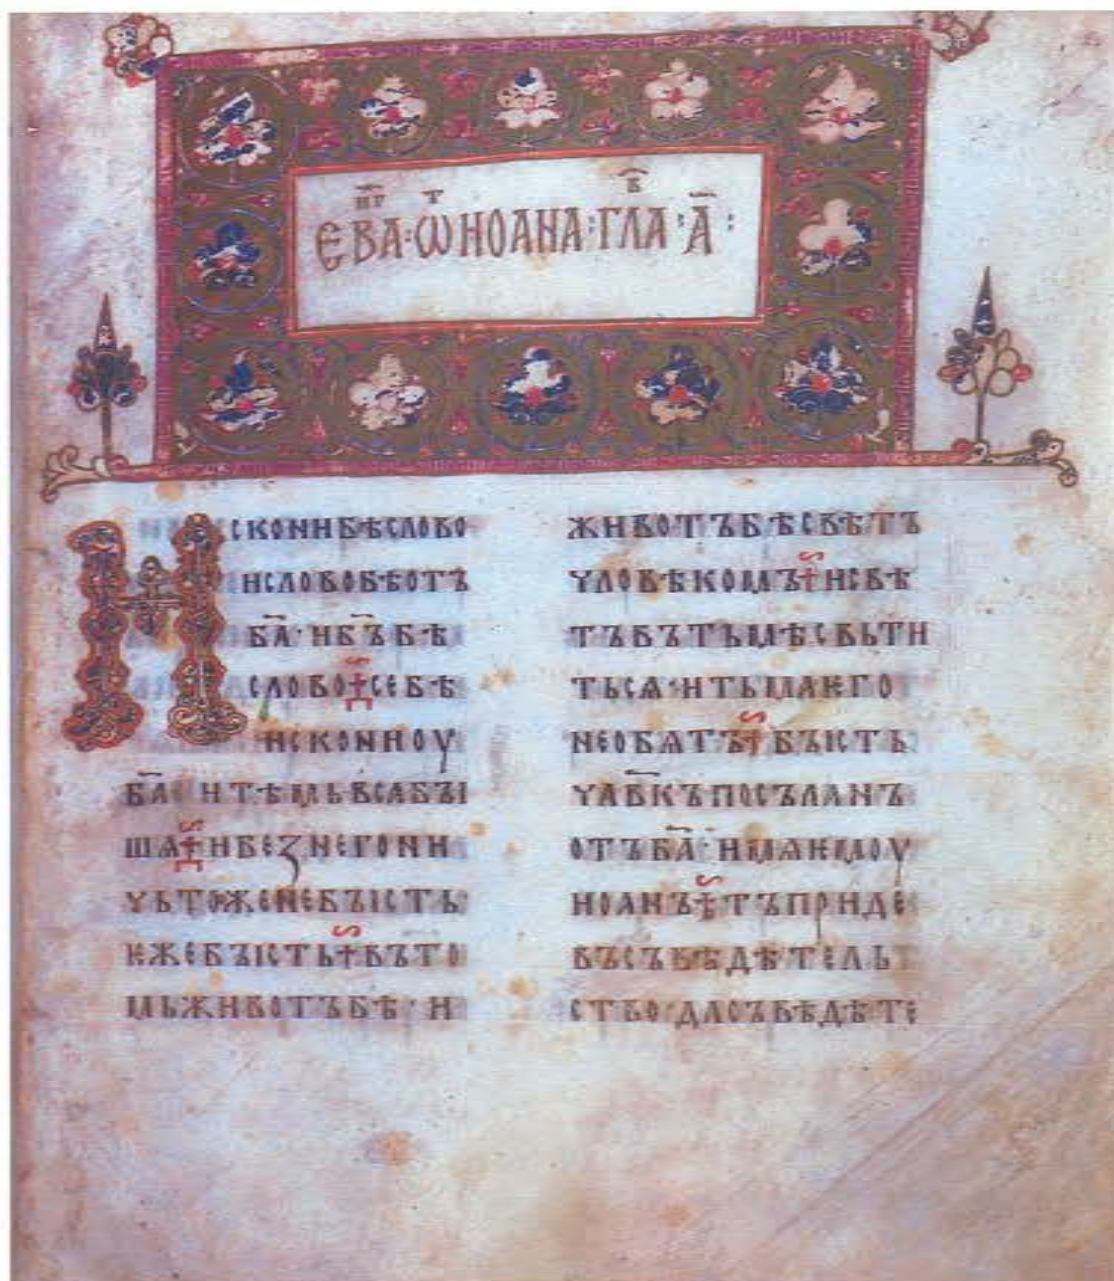 ЕВА·ѠИОАНА·ГЛА·А҃:
СКОНИБѢСЛОВО
ИСЛОВОБѢОТЪ
БА҃·ИБ҃ЪБѢ
СЛОВО·СЕБѢ
ИСКОНИОУ
БА҃ ИТѢМЬВСАБЪІ
ШѦ·ИБЕЗНЕГОНИ
ЧЬТОЖЕНЕБЪІСТЬ
ЕЖЕБЪІСТЬ·ВЪТО
МЬЖИВОТЪБѢ·И
ЖИВОТЪБѢСВѢТЪ
ЧЛОВѢКОМЪ·ИСВѢ
ТЪВЪТЬМѢСВЬТИ
ТЬСѦ·ИТЬМАѤГО
НЕОБѦТЪ·БЪІСТЬ
ЧЛ҃ВКЪПОСЪЛАНЪ
ОТЪБА҃·ИМѦѤМОУ
ИОАНЪ·ТЪПРИДЕ
ВЪСЪВѢДѢТЕЛЬ
СТВО·ДАСЪВѢДѢТЕ